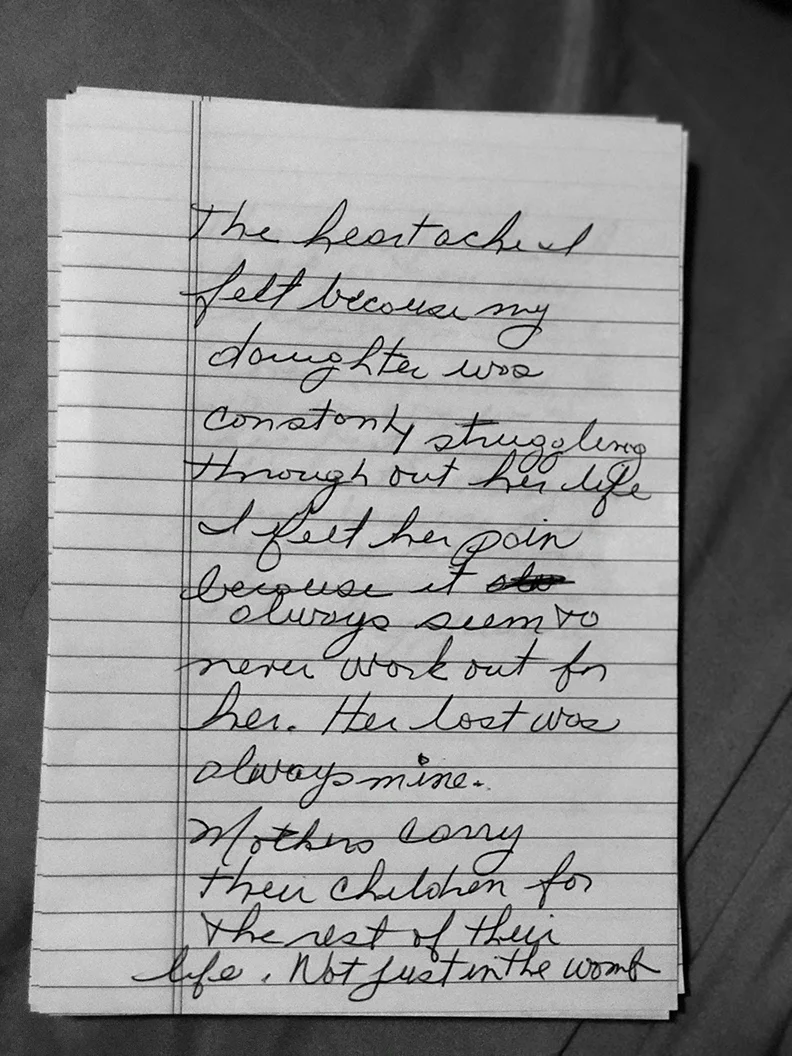 The heartache I
felt because my
daughter was
constantly struggling
through out her life
I felt her pain
because it
always seem to
never work out for
her. Her lost was
always mine.
Mothers carry
their children for
the rest of their
life. Not just in the womb